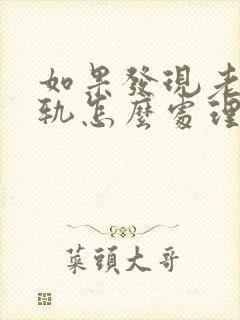 如果發現老
軌怎麼處理
菜頭大哥